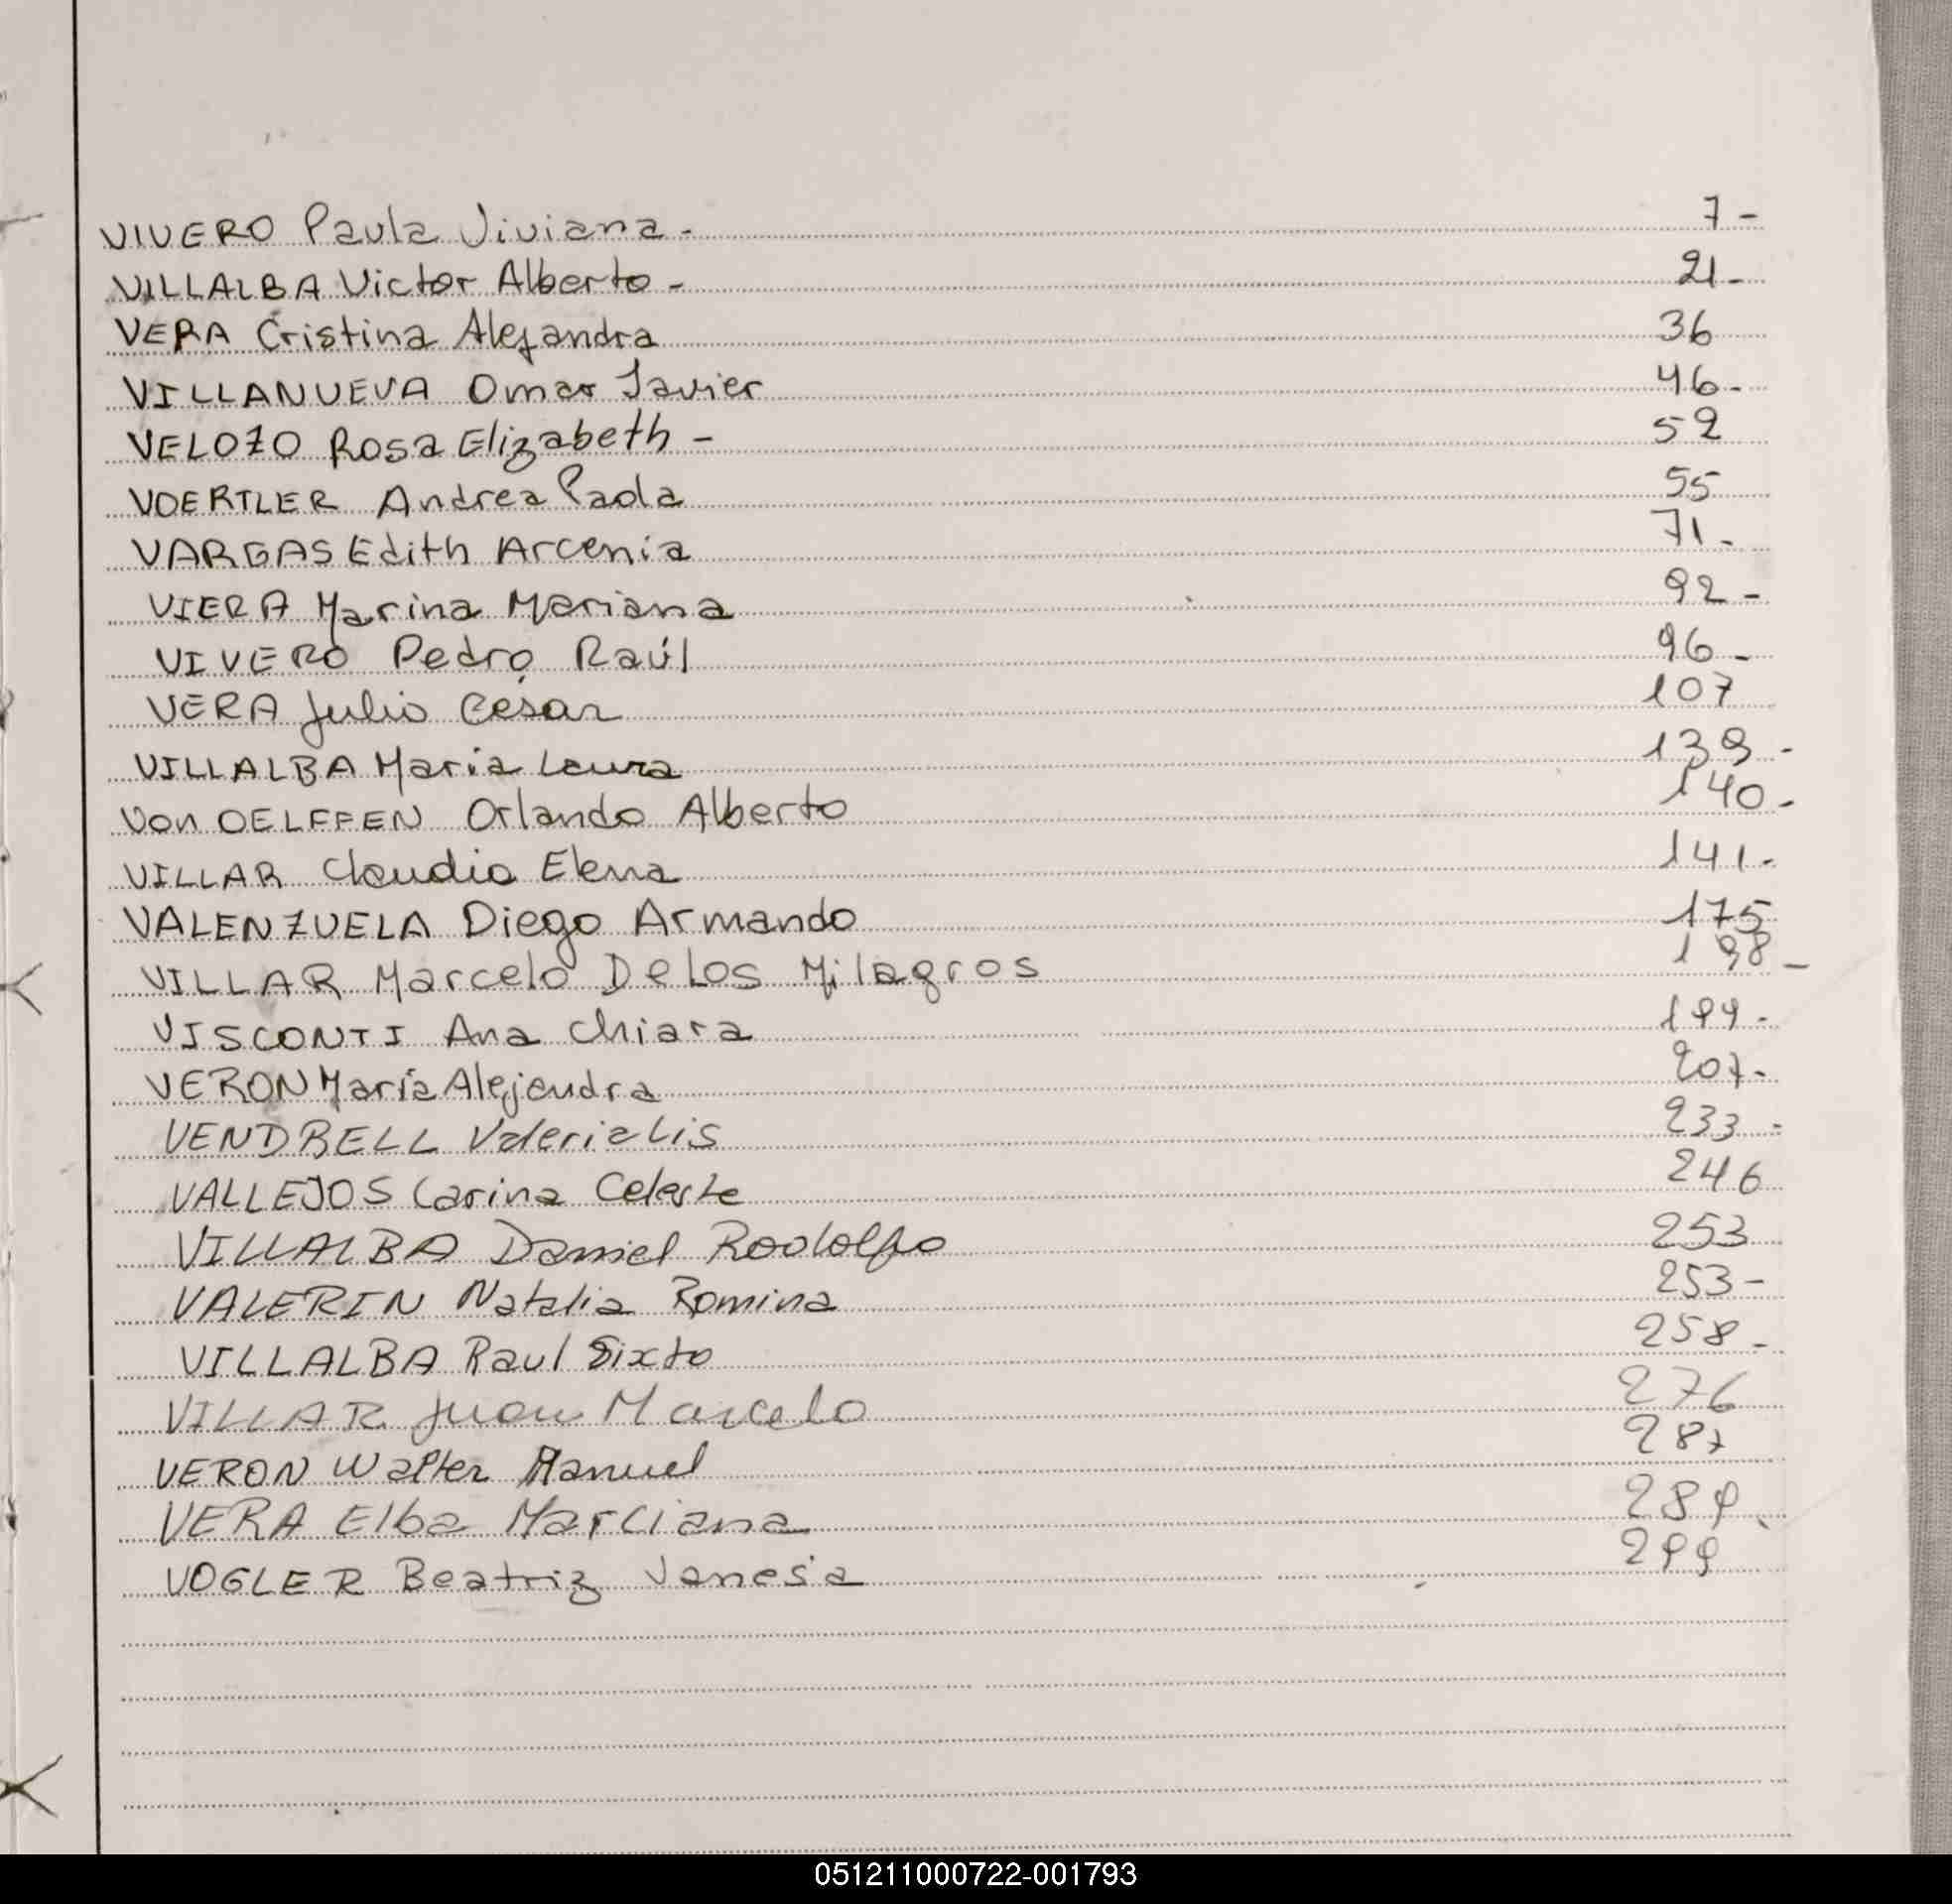 VIVERO Paula Viviana - 7 -
VILLALBA Victor Alberto - 21 -
VERA Cristina Alejandra 36
VILLANUEVA Omar Javier 46 -
VELOZO Rosa Elizabeth - 52
VOERTLER Andrea Paola 55
VARGAS Edith Arcenia 71 -
VIERA Marina Mariana 92 -
VIVERO Pedro Raúl 96 -
VERA Julio César 107
VILLALBA Maria Laura 139 -
Von OELFFEN Orlando Alberto 140 -
VILLAR Claudia Elena 141 -
VALENZUELA Diego Armando 175
VILLAR Marcelo De Los Milagros 198 -
VISCONTI Ana Chiara 199 -
VERON María Alejandra 207 -
VENDRELL Valeria Lis 233 -
VALLEJOS Carina Celeste 246
VILLALBA Daniel Rodolfo 253
VALERIN Natalia Romina 253 -
VILLALBA Raul Sixto 258 -
VILLAR Juan Marcelo 276
VERON Walter Manuel 287
VERA Elba Marciana 289
VOGLER Beatriz Vanesa 299
051211000722-001793